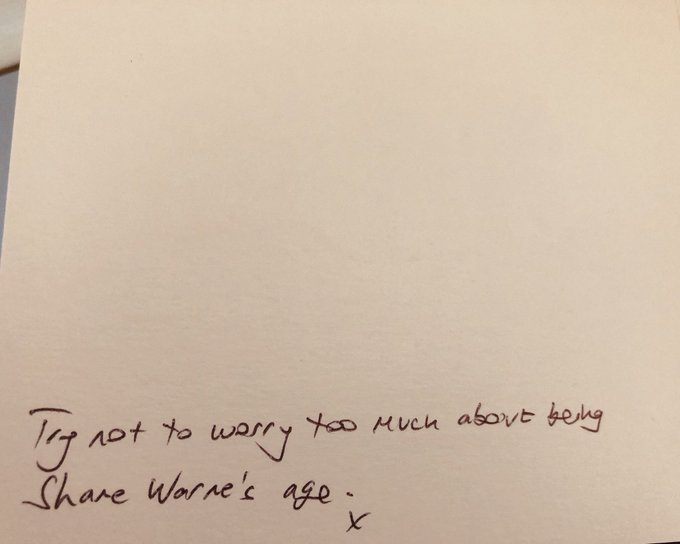 Try not to worry too much about being
Shane Warne's age.
x